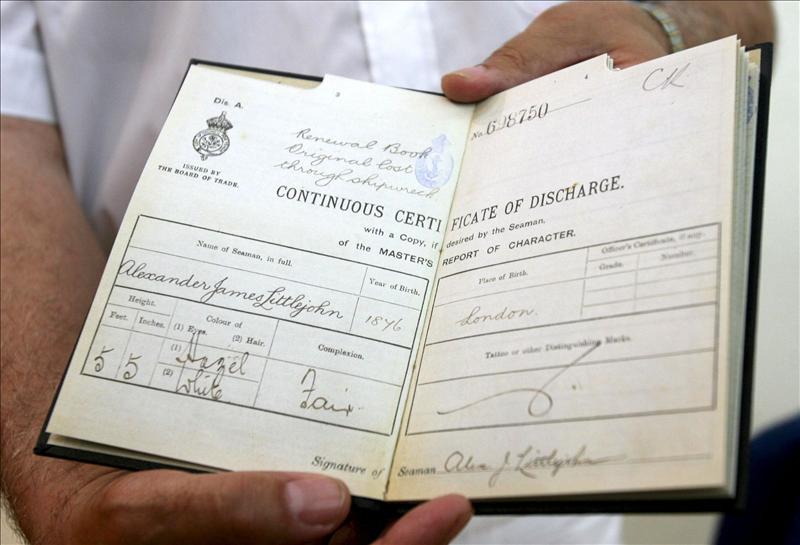 3
Dis. A.
ISSUED BY
THE BOARD OF TRADE.
Renewal Book
Original lost
through shipwreck
CONTINUOUS CERTI
with a Copy, if
of the MASTER'S
Name of Seaman, in full.
Year of Birth.
Alexander James Littlejohn
1876
Height.
Feet. Inches.
Colour of
(1) Eyes. (2) Hair.
Complexion.
5 5
(1) Hazel
(2) White
Fair
Signature of
4
CR
No. 698750
FICATE OF DISCHARGE.
desired by the Seaman,
REPORT OF CHARACTER.
Place of Birth.
Officer's Certificate, if any.
Grade.
Number.
London.
Tattoo or other Distinguishing Marks.
Seaman Alex J Littlejohn